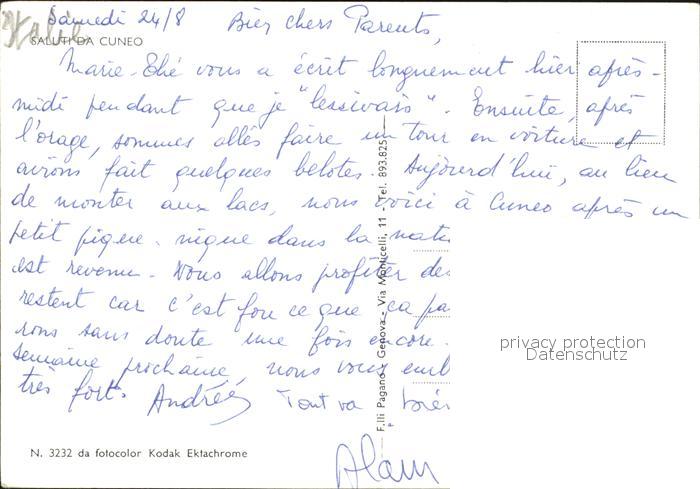 Italie
Samedi 24/8 Bien chers Parents,
SALUTI DA CUNEO
Marie- vous a écrit longuement hier après-
midi pendant que je "lessivais". Ensuite, après
l'orage, sommes allés faire un tour en voiture et
avions fait quelques belotes. Aujourd'hui, au lieu
de monter aux lacs, nous voici à Cuneo après un
petit pique-nique dans la natu
est revenu. Nous allons profiter de
restent car c'est fou ce que ça pa
rons sans doute une fois encore.
semaine prochaine, nous vous emb
très fort. Andrée Tout va bien
Alain
F.lli Pagano - Genova - Via Monticelli, 11 - Tel. 893.825
N. 3232 da fotocolor Kodak Ektachrome
privacy protection
Datenschutz